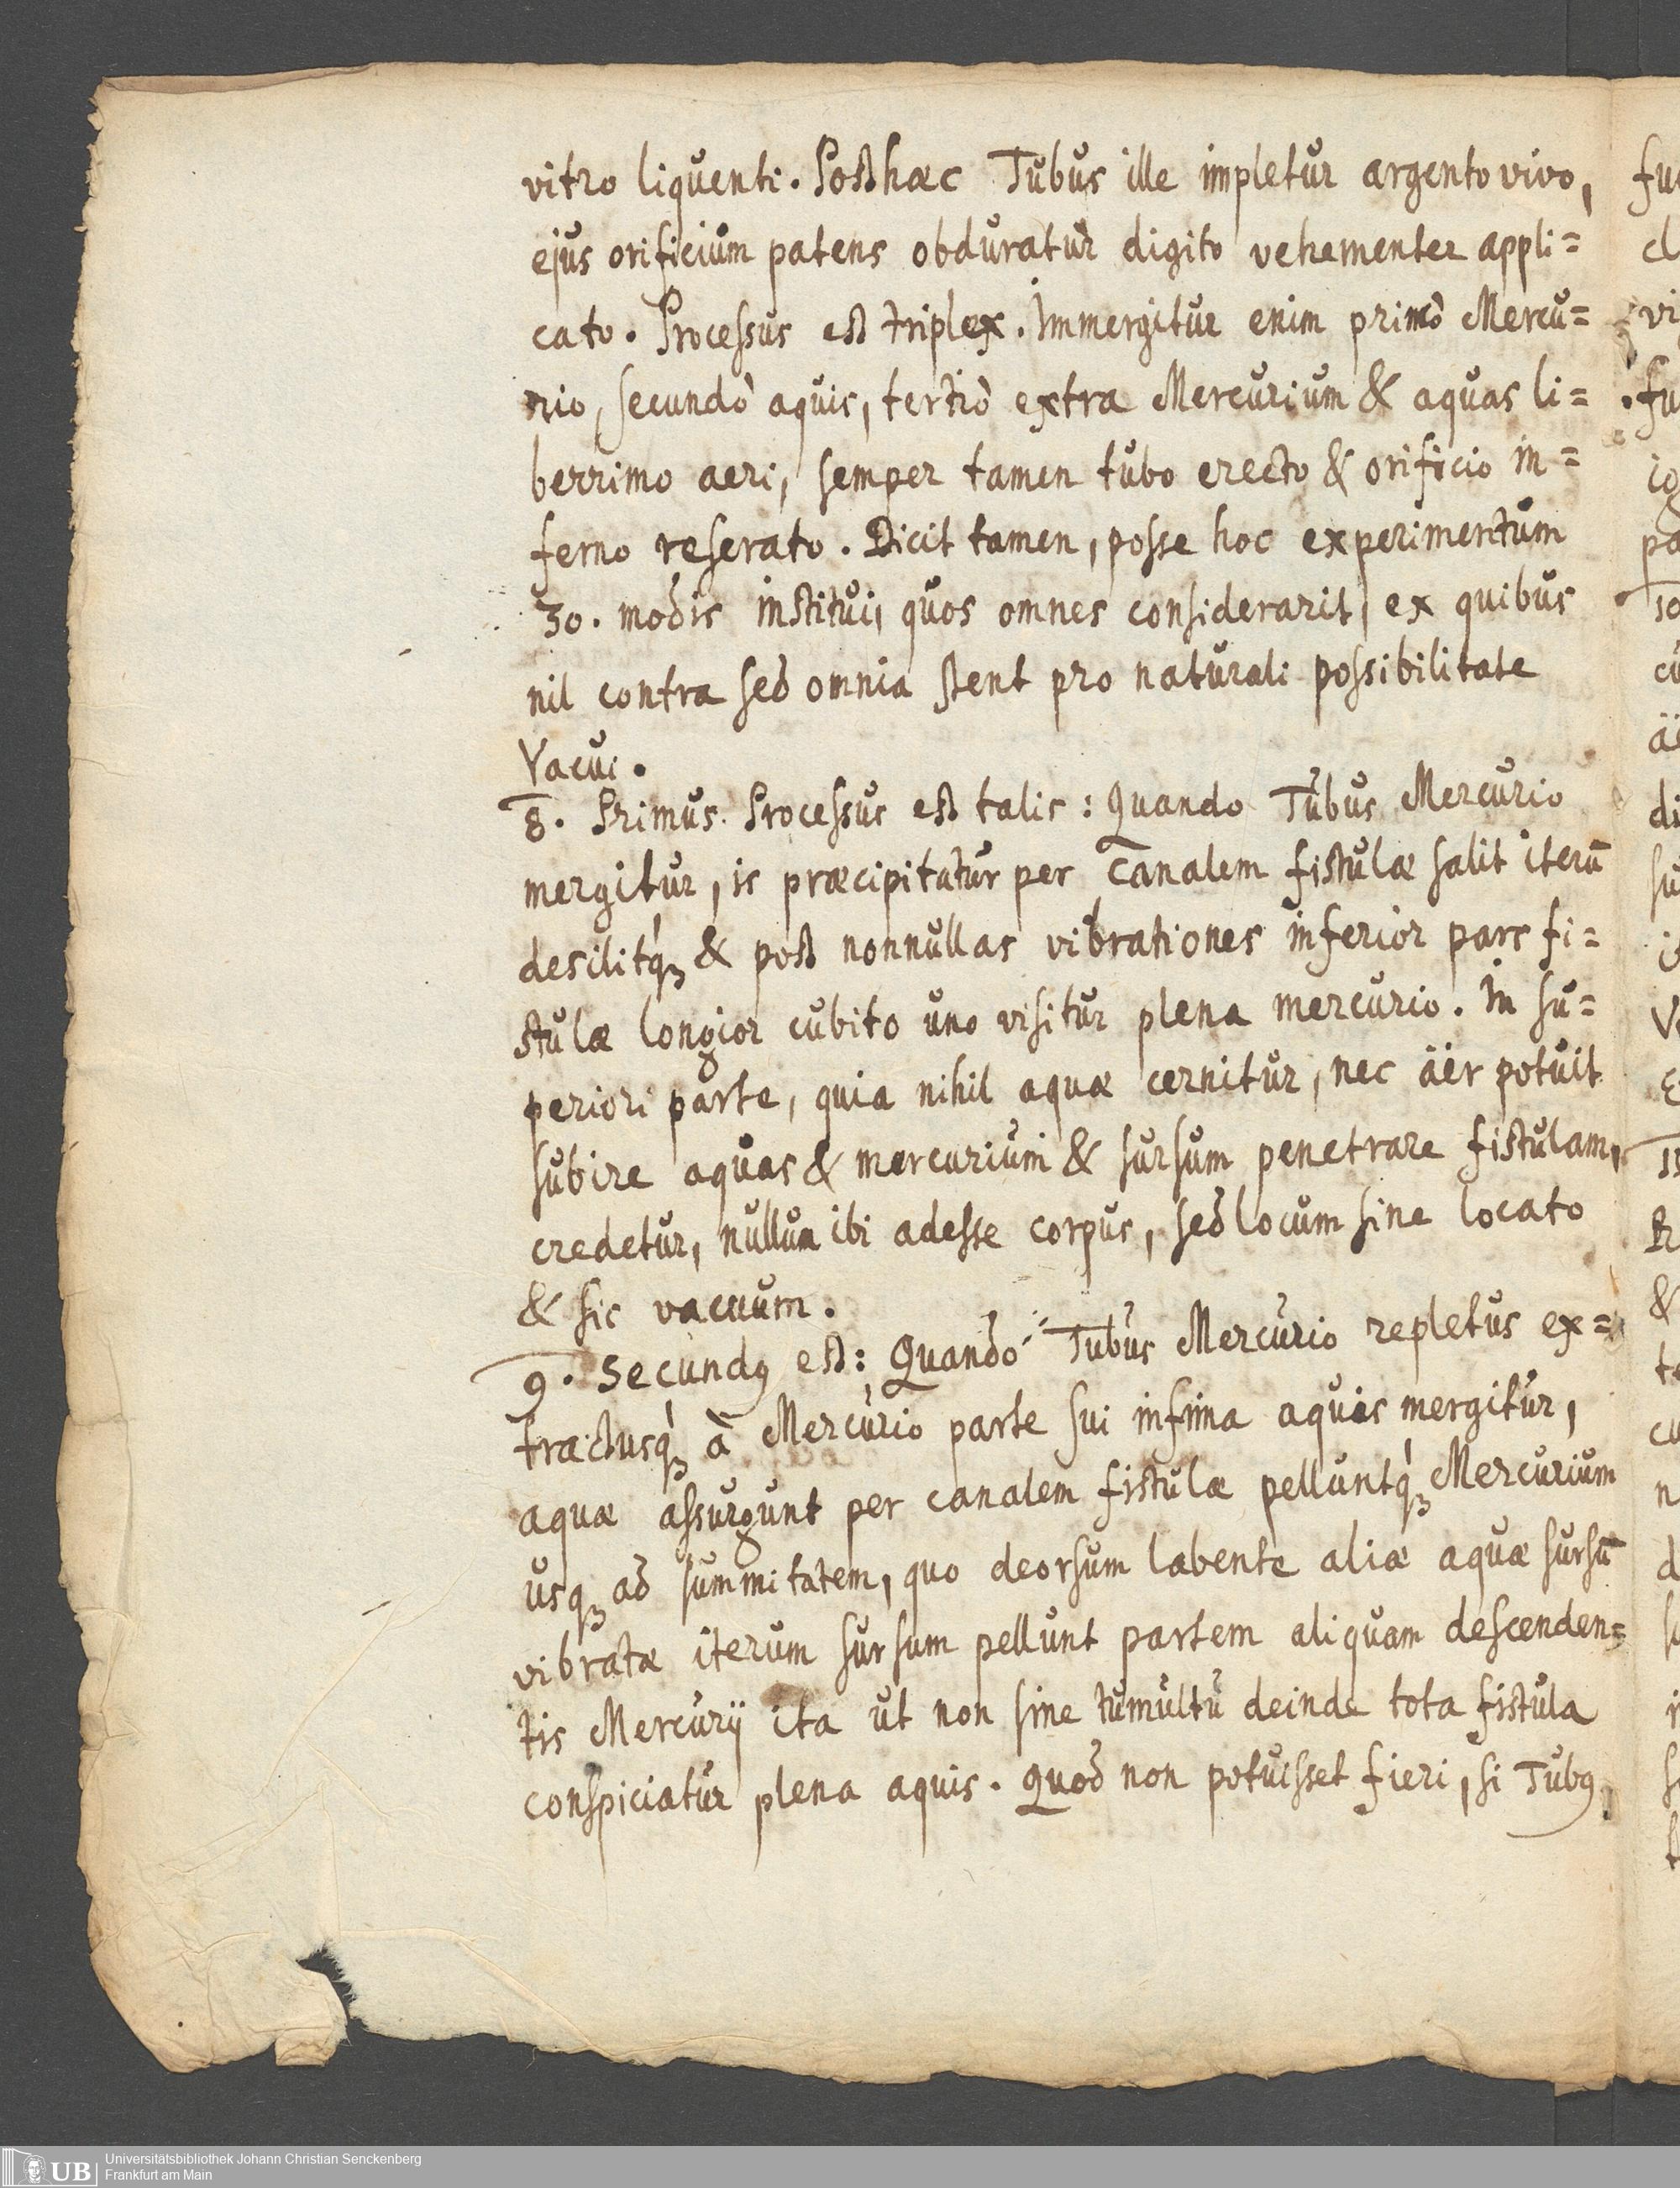 vitro liquenti. Posthæc Tubus ille impletur argento vivo,
ejus orificium patens obduratur digito vehementer appli=
cato. Processus est triplex. Immergitur enim primò Mercu=
rio, secundò aquis, tertiò extra Mercurium & aquas li=
berrimo aeri, semper tamen tubo erecto & orificio in=
ferno reserato. Dicit tamen, posse hoc experimentum
30. modis institui, quos omnes considerarit, ex quibus
nil contra sed omnia stent pro naturali possibilitate
Vacui.
8. Primus Processus est talis: Quando Tubus Mercurio
mergitur, is præcipitatur per canalem fistulæ salit iterū
desilitq́ꝫ & post nonnullas vibrationes inferior pars fi=
stulæ longior cubito uno visitur plena mercurio. In su=
periori parte, quia nihil aquæ cernitur, nec äer potuit
subire aquas & mercurium & sursum penetrare fistulam,
credetur, nullum ibi adesse corpus, sed locum sine locato
& sic vacuum.
9. Secundꝰ est: Quando Tubus Mercurio repletus ex=
tractusq́ꝫ à Mercurio parte sui infima aquis mergitur,
aquæ assurgunt per canalem fistulæ pelluntq́ꝫ Mercurium
usqꝫ ad summitatem, quo deorsum labente aliæ aquæ sursū
vibratæ iterum sursum pellunt partem aliquam descenden=
tis Mercurij ita ut non sine tumultu deinde tota fistula
conspiciatur plena aquis. Quod non potuisset fieri, si Tubꝰ
UB Universitätsbibliothek Johann Christian Senckenberg
Frankfurt am Main